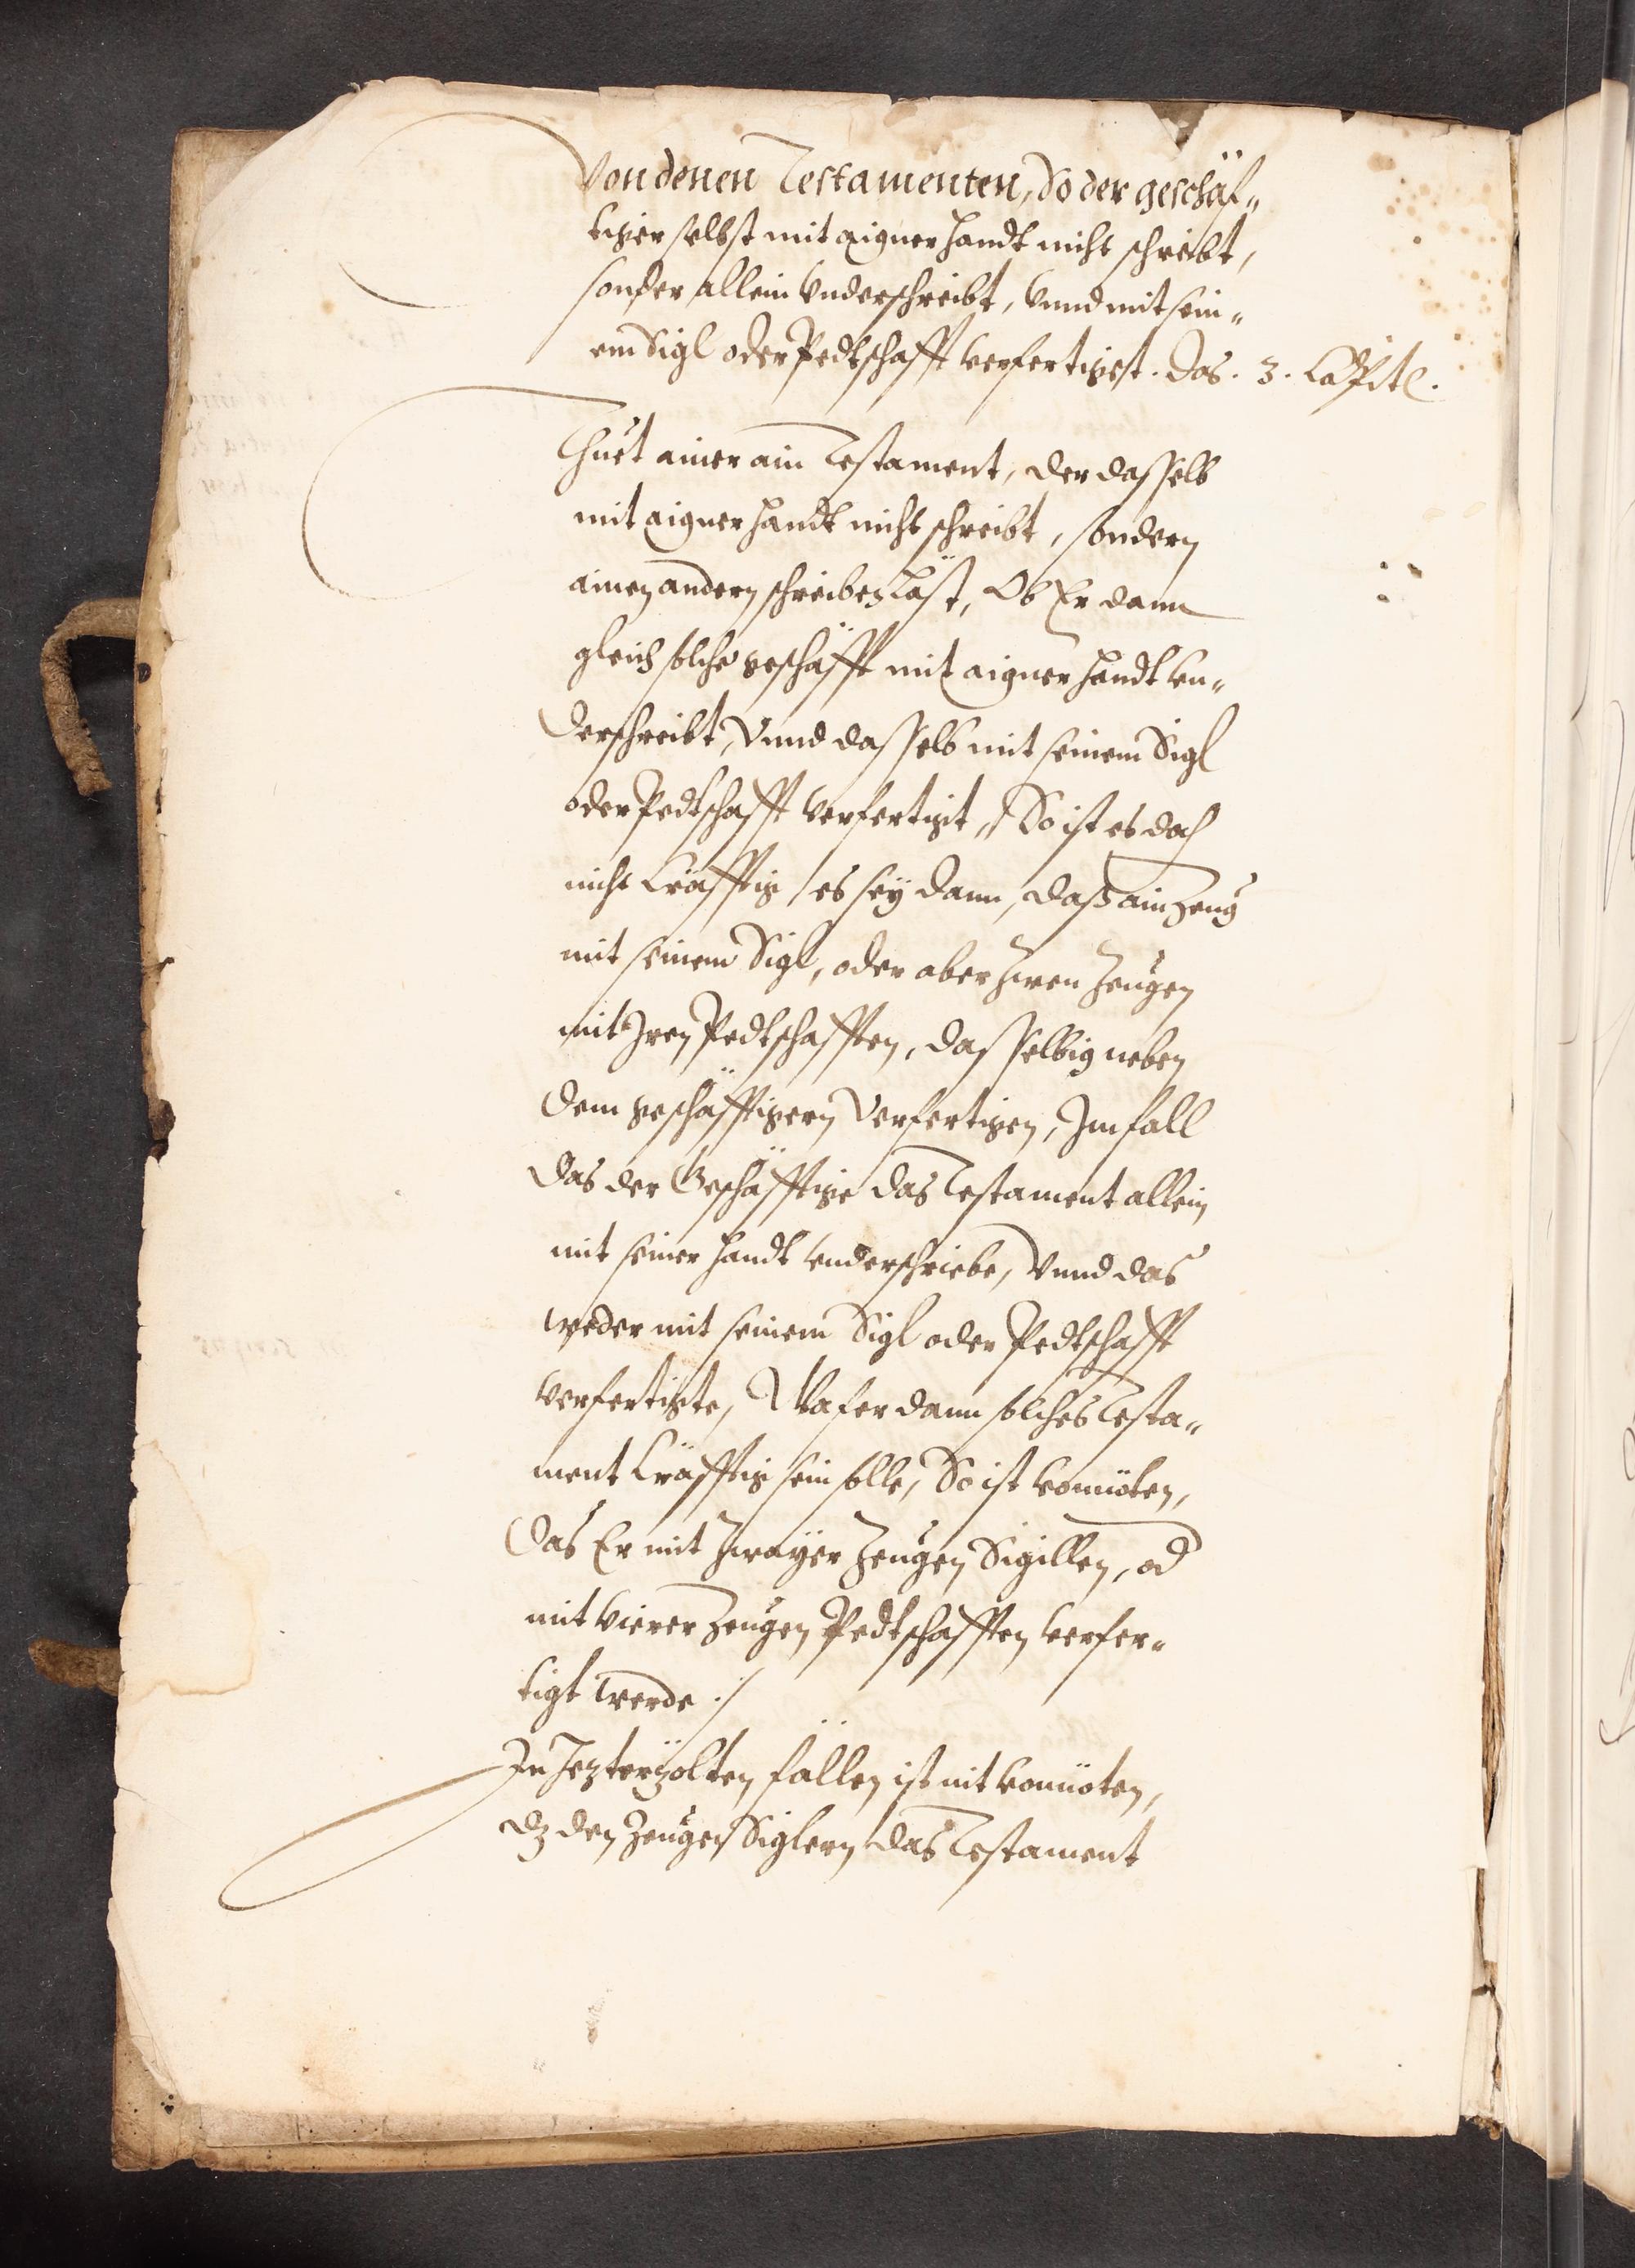 Von denen Testamenten, So der geschäf„
tiger selbst mit aigner handt nicht schreibt,
sonder allein Underschreibt, Vnnd mit sein„
em Sigl oder Pedtschafft verfertiget. Das. 3. Capitl.
Thuet ainer ain Testament, der dasselb
mit aigner handt nicht schreibt, sondern
ainen andern schreiben läst, Ob Er dann
gleich solche geschäfft mit aigner handt vn„
derschreibt, Vnnd dasselb mit seinem Sigl
oder Pedtschafft verfertigt, So ist es doch
nicht Cräfftig, es sey dann, daß ain Zeug
mit seinem Sigl, oder aber Zwen Zeugen
mit Iren Pedtschafften, dasselbig neben
dem geschäfftigern Verfertigen, Im fall
das der Geschäfftige das Testament allein
mit seiner handt vnderschriebe, Vnnd das
weder mit seinem Sigl oder Pedtschafft
verfertigte, Wafer dann solches Testa„
ment Cräfftig sein solle, So ist vonnöten,
Das Er mit Zwayer Zeugen Sigillen, od
mit vierer Zeugen Pedtschafften verfer„
tigt werde ./
In Jezterzölten fällen ist nit vonnöten,
dz den Zeugen Siglern das Testament